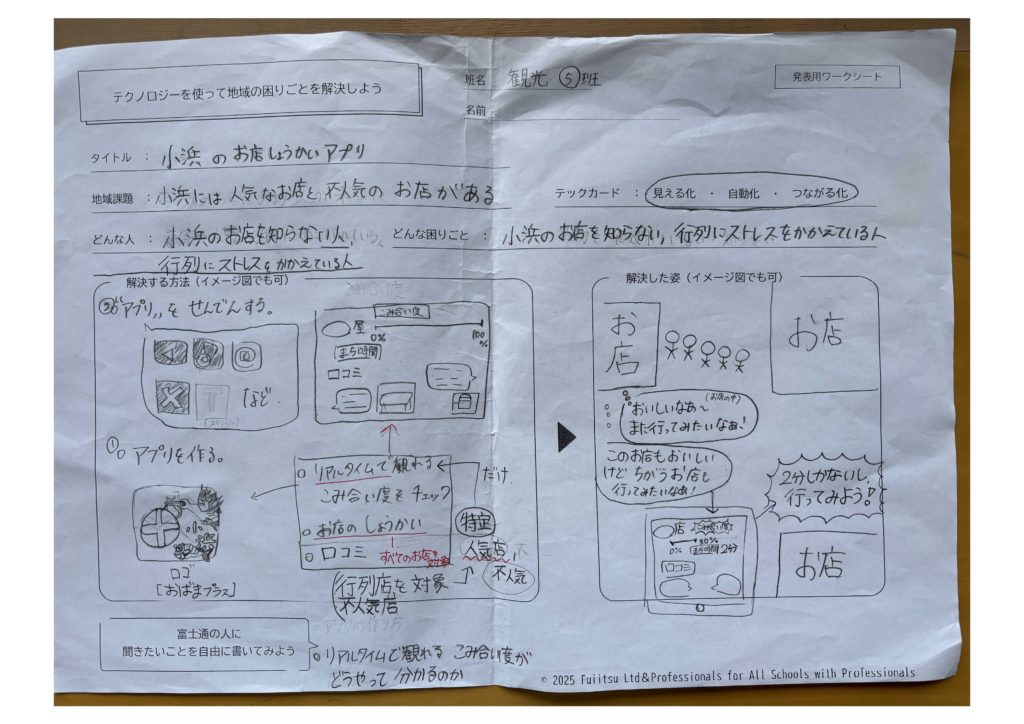 テクノロジーを使って地域の困りごとを解決しよう
班名 観光 ⑤班
名前
発表用ワークシート
タイトル : 小浜 の お店しょうかいアプリ
地域課題 : 小浜には 人気なお店と 不人気の お店がある
テックカード : 見える化 ・ 自動化 ・ つながる化
どんな人 : 小浜のお店を知らない人、
行列にストレスをかかえている人
どんな困りごと : 小浜のお店を知らない,行列にストレスをかかえている人
解決する方法(イメージ図でも可)
② "アプリ,, を せんでんする。
X
T
など
こみ合い度
屋
0%
100%
まち時間
口コミ
① アプリを作る。
ロゴ
[おばまプラス]
○ リアルタイムで 観れる
こみ合い度を チェック
○ お店の しょうかい
○ 口コミ
すべてのお店を対象
行列店を 対象
不人気店
だけ
特定
人気店
不人気
解決した姿(イメージ図でも可)
お店
お店
(お店の中)
おいしいなあ~
また行ってみたいなぁ!
このお店もおいしい
けど ちがうお店も
行ってみたいなぁ!
2分しかないし,
行ってみよう!
店 こみ合い度
0% 30%
まち時間 2分
口コミ
お店
富士通の人に
聞きたいことを自由に書いてみよう
アプリの作り方
○ リアルタイムで観れる こみ合い度が
どうやって 分かるのか
© 2025 Fujitsu Ltd&Professionals for All Schools with Professionals